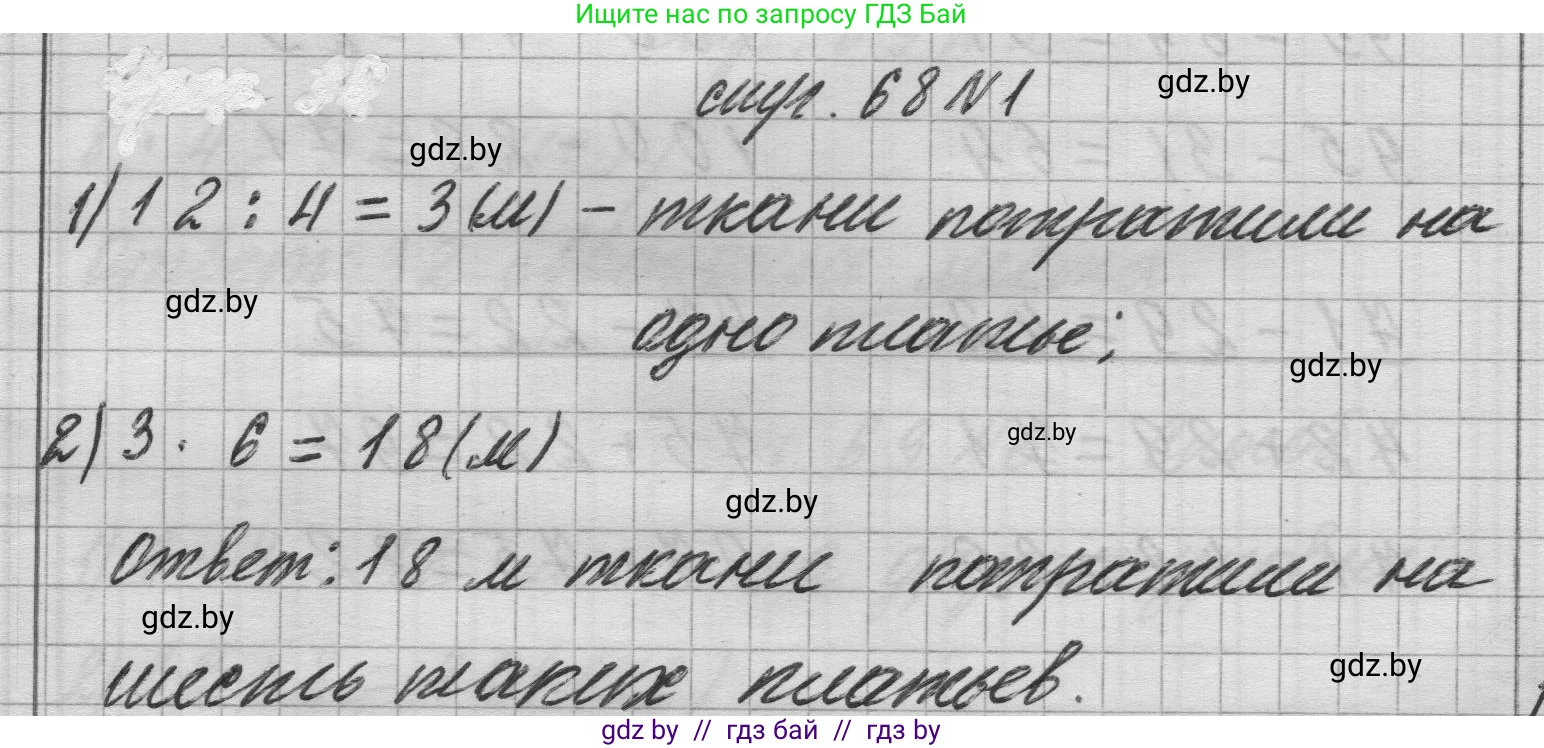 Ищите нас по запросу ГДЗ Бай
стр. 68 N 1
gdz.by
gdz.by
1) 12 : 4 = 3 (м) – ткани потратили на
gdz.by
одно платье;
gdz.by
2) 3 · 6 = 18 (м)
gdz.by
gdz.by
Ответ: 18 м ткани потратили на
gdz.by
шесть таких платьев.
gdz.by
gdz by // гдз бай // гдз by